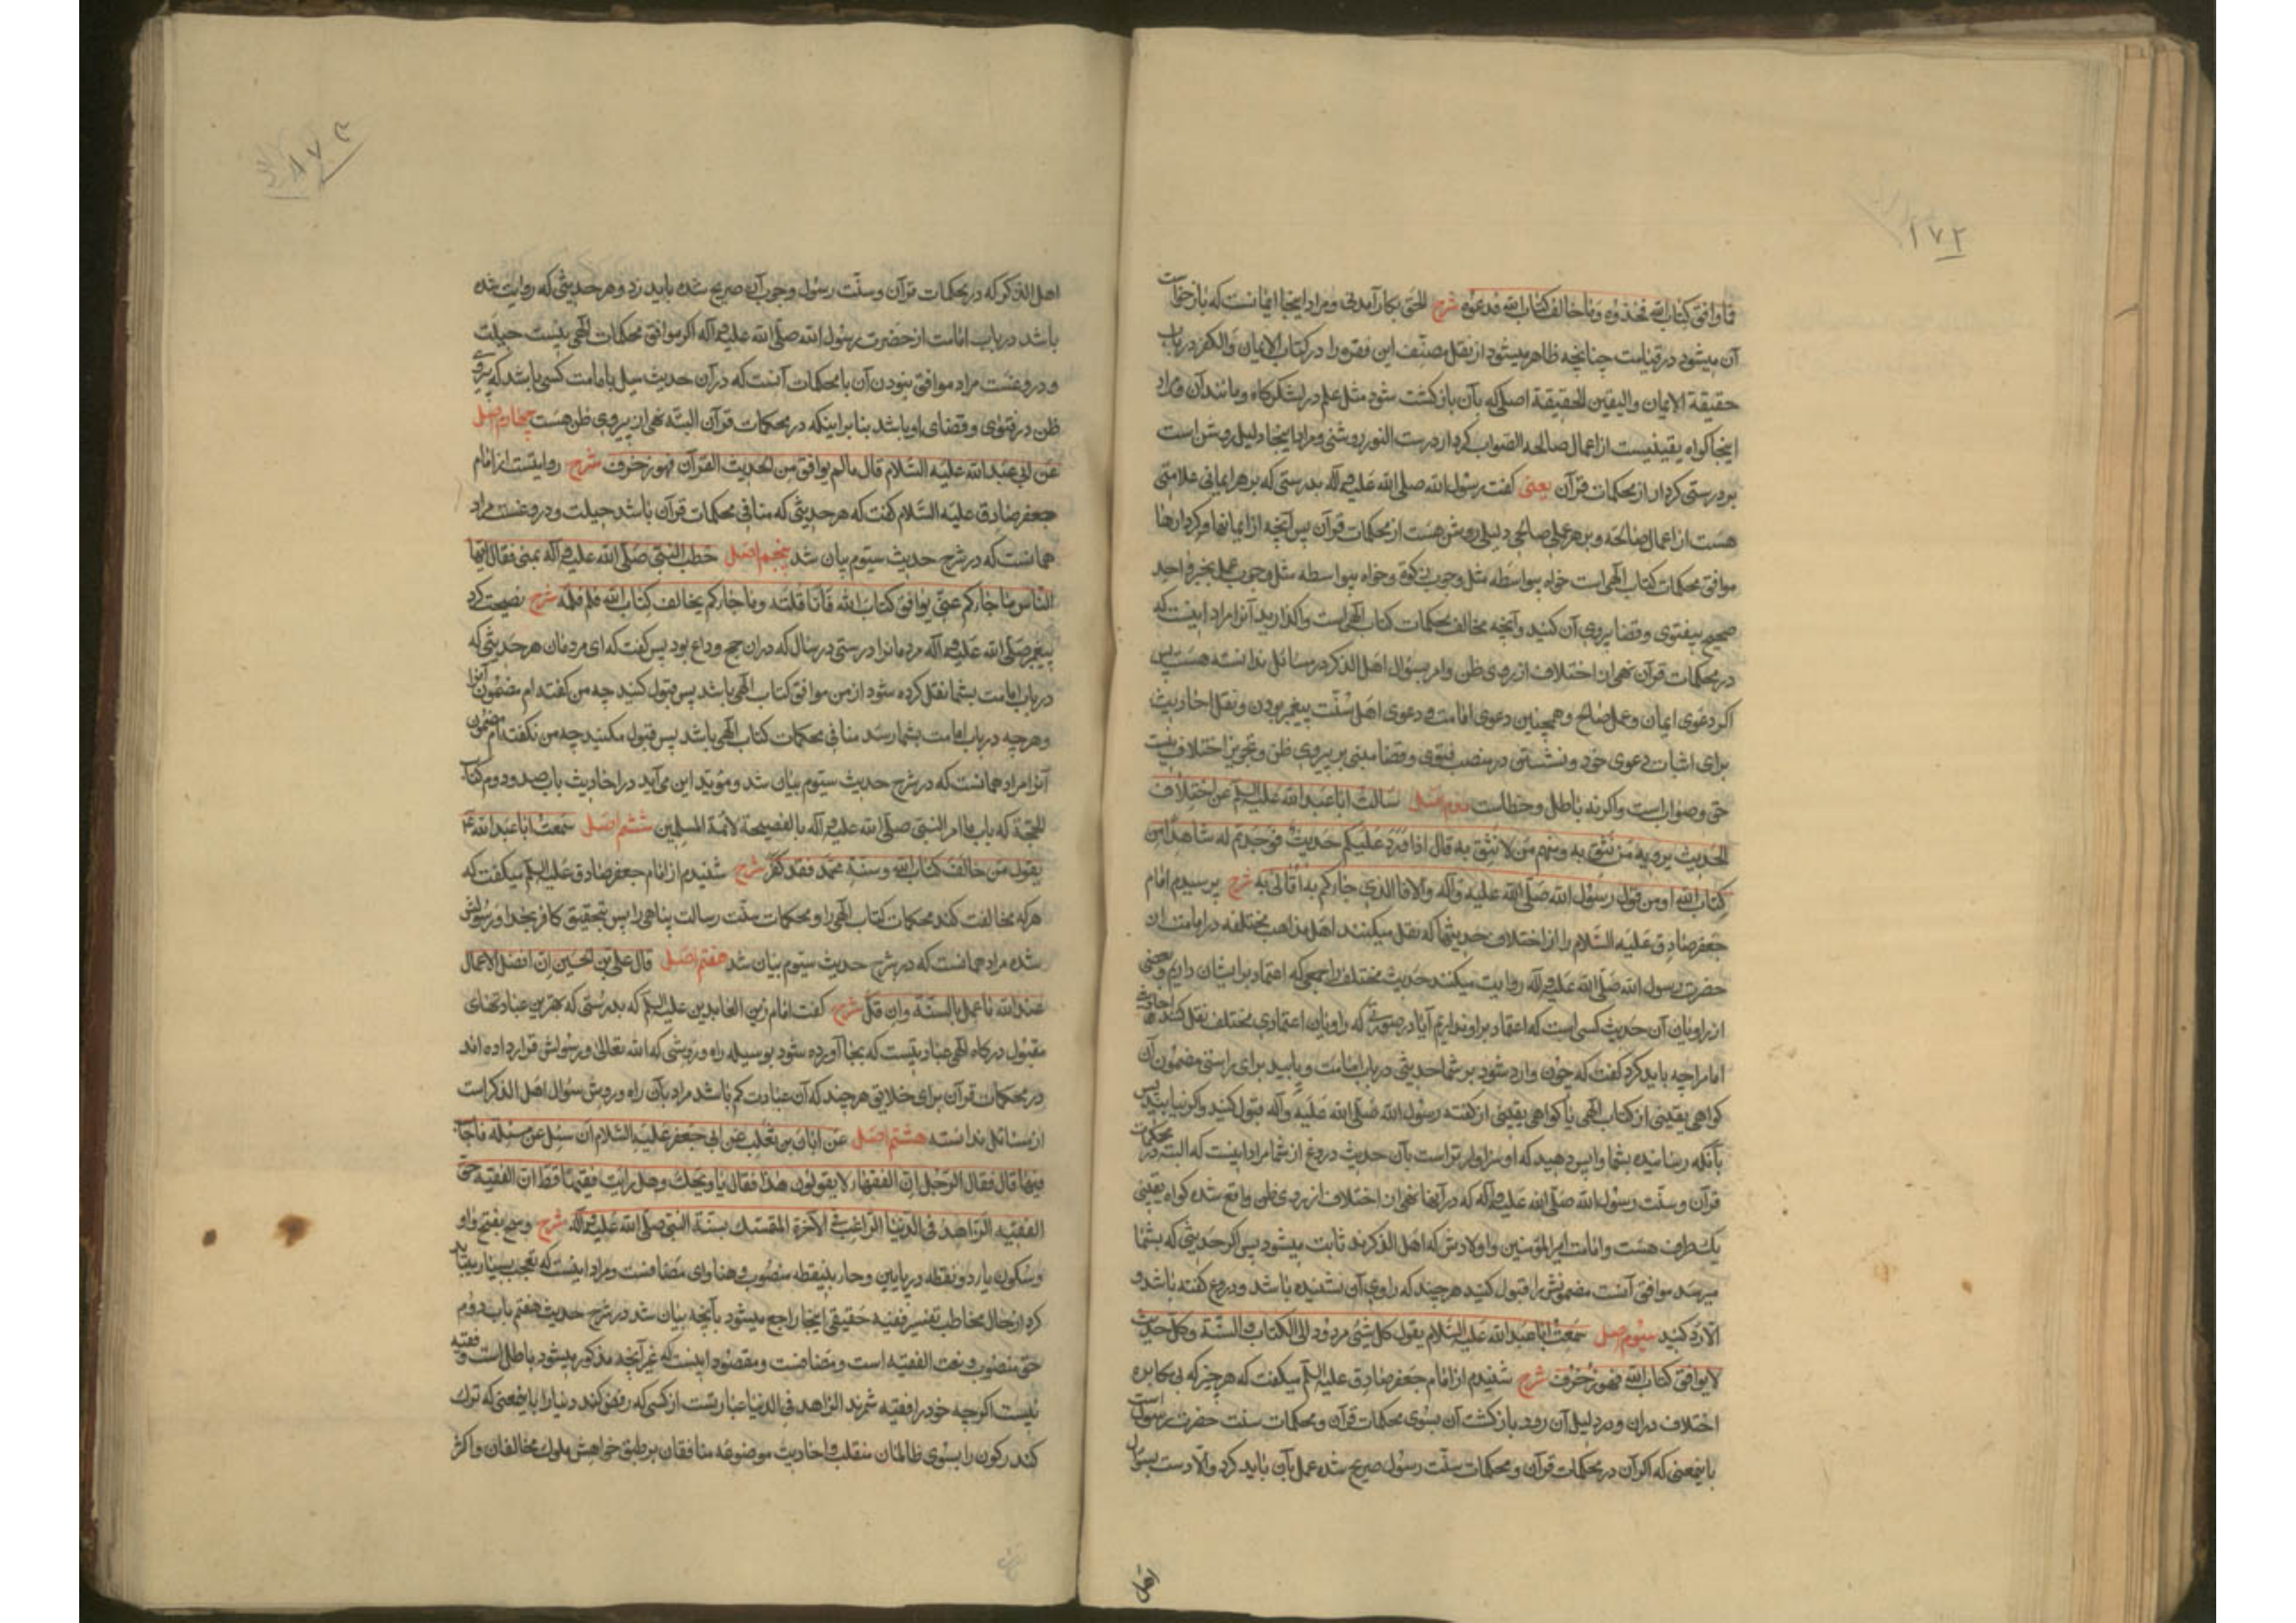 ۱۷۲
فما وافق کتاب الله فخذوه وما خالف کتاب الله فدعوه شرح الحق بکار آمدنی ومراد اینجا ایمانست که باز خواست
آن میشود در قیامت چنانچه ظاهر میشود از نقل مصنف این فقره را در کتاب الایمان والکفر در باب
حقیقة الایمان والیقین الحقیقة اصلی که بآن بازگشت شود مثل علم در لشکرگاه ومانند آن ومراد
اینجا گواه یقینیست از اعمال صالحه الصواب کردار درست النور روشنی ومراد اینجا دلیل روشن است
بر درستی کردار از محکمات قرآن یعنی گفت رسول الله صلی الله علیه وآله بدرستی که بر هر ایمانی علامتی
هست از اعمال صالحه وبر هر عمل صالحی دلیلی روشن هست از محکمات قرآن پس آنچه از ایمانها وکردارها
موافق محکمات کتاب الهی است خواه بیواسطه مثل وجوب زکوة وخواه بواسطه مثل وجوب عمل بخبر واحد
صحیح بیفتوی وقضا پیروی آن کنید وآنچه مخالف محکمات کتاب الهی است واگذارید آنرا مراد اینست که
در محکمات قرآن نهی از اختلاف از روی ظن وامر بسؤال اهل الذکر در مسائل ندانسته هست پس
اگر دعوی ایمان وعمل صالح وهمچنین دعوی امامت ودعوی اهل سنت پیغمبر بودن ونقل احادیث
برای اثبات دعوی خود ونشستن در منصب فتوی وقضا مبنی بر پیروی ظن وتجویز اختلاف نیست
حق وصواب است واگر نه باطل وخطاست دوم اصل سالت ابا عبد الله علیه السلم عن اختلاف
الحدیث یرویه من نثق به ومنهم من لا نثق به قال اذا ورد علیکم حدیث فوجدتم له شاهدا من
کتاب الله او من قول رسول الله صلی الله علیه وآله والا فالذی جاءکم به اولی به شرح پرسیدم امام
جعفر صادق علیه السلام را از اختلاف حدیثها که نقل میکنند اهل مذاهب مختلفه در امامت از
حضرت رسول الله صلی الله علیه وآله روایت میکنند حدیث مختلف را جمعی که اعتماد بر ایشان داریم وبعضی
از راویان آن حدیث کسی است که اعتماد بر او نداریم آیا در صورتی که راویان اعتمادی مختلف نقل کنند احادیث
امام را چه باید کرد گفت که چون وارد شود بر شما حدیثی در باب امامت ویابید برای راستی مضمون آن
گواهی یقینی از کتاب الهی یا گواهی یقینی از گفته رسول الله صلی الله علیه وآله قبول کنید واگر نیابید پس
بآنکه رسانیده بشما واپس دهید که او سزاوارتر است بآن حدیث دروغ از شما مراد اینست که البته در محکمات
قرآن وسنت رسول الله صلی الله علیه وآله که در آنها نهی از اختلاف از روی ظن واقع شده گواه یقینی
یک طرف هست وامامت امیر المؤمنین واولادش که اهل الذکرند ثابت میشود پس اگر حدیثی که بشما
میرسد موافق آنست مضمونش را قبول کنید هر چند که راوی آن نشنیده باشد ودروغ گفته باشد و
الا رد کنید سیوم اصل سمعت ابا عبد الله علیه السلام یقول کل شئ مردود الی الکتاب والسنة وکل حدیث
لا یوافق کتاب الله فهو زخرف شرح شنیدم از امام جعفر صادق علیه السلم میگفت که هر چیز که بی مکابره
اختلاف در آن ودر دلیل آن رود بازگشت آن بسوی محکمات قرآن ومحکمات سنت حضرت رسول است
باینمعنی که اگر آن در محکمات قرآن ومحکمات سنت رسول صریح شده عمل بآن باید کرد والا دست بسؤال
اهل
اهل الذکر که در محکمات قرآن وسنت رسول وجوب آن صریح شده باید زد وهر حدیثی که روایت شده
باشد در باب امامت از حضرت رسول الله صلی الله علیه وآله اگر موافق محکمات الهی نیست حیلت
ودروغست مراد موافق نبودن آن با محکمات آنست که در آن حدیث میل بامامت کسی باشد که پیروی
ظن در فتوای وقضای او باشد بنابر اینکه در محکمات قرآن البته نهی از پیروی ظن هست چهارم اصل
عن ابی عبد الله علیه السلام قال ما لم یوافق من الحدیث القرآن فهو زخرف شرح روایتست از امام
جعفر صادق علیه السلام گفت که هر حدیثی که منافی محکمات قرآن باشد حیلت ودروغست مراد
همانست که در شرح حدیث سیوم بیان شد پنجم اصل خطب النبی صلی الله علیه وآله بمنی فقال ایها
الناس ما جاءکم عنی یوافق کتاب الله فانا قلته وما جاءکم یخالف کتاب الله فلم اقله شرح نصیحت کرد
پیغمبر صلی الله علیه وآله مردمانرا در منی در سال که در ان حج وداع بود پس گفت که ای مردمان هر حدیثی که
در باب امامت بشما نقل کرده شود از من موافق کتاب الهی باشد پس قبول کنید چه من گفته ام مضمون آنرا
وهر چه در باب امامت بشما رسد منافی محکمات کتاب الهی باشد پس قبول مکنید چه من نگفته ام مضمون
آنرا مراد همانست که در شرح حدیث سیوم بیان شد ومؤید این می آید در احادیث باب صد ودوم کتاب
الحجة که باب ما امر النبی صلی الله علیه وآله بالنصیحة لائمة المسلمین ششم اصل سمعت ابا عبد الله ع
یقول من خالف کتاب الله وسنة محمد فقد کفر شرح شنیدم از امام جعفر صادق علیه السلم میگفت که
هر که مخالفت کند محکمات کتاب الهی را ومحکمات سنت رسالت پناهی را پس بتحقیق کافر بخدا ورسولش
شده مراد همانست که در شرح حدیث سیوم بیان شد هفتم اصل قال علی بن الحسین ان افضل الاعمال
عند الله ما عمل بالسنة وان قل شرح گفت امام زین العابدین علیه السلم که بدرستی که بهترین عبادتهای
مقبول درگاه الهی عبادتیست که بجا آورده شود بوسیله راه وروشی که الله تعالی ورسولش قرار داده اند
در محکمات قرآن برای خلایق هر چند که آن عبادت کم باشد مراد بآن راه وروش سؤال اهل الذکر است
از مسائل ندانسته هشتم اصل عن ابان بن تغلب عن ابی جعفر علیه السلام ان سئل عن مسئلة فاجاب
فیها قال فقال الرجل ان الفقهاء لا یقولون هذا فقال یا ویحک وهل رایت فقیها قط ان الفقیه حق
الفقیه الزاهد فی الدنیا الراغب فی الآخرة المتمسک بسنة النبی صلی الله علیه وآله شرح ویح بفتح واو
وسکون یاء دو نقطه در پایین وحاء بینقطه منصوب
کرد از حال مخاطب تفسیر فقیه حقیقی اینجا راجع میشود بآنچه بیان شد در شرح حدیث هفتم باب دوم
حق منصوب ونعت الفقیه است ومضافست ومقصود اینست که غیر آنچه مذکور میشود باطل است وفقیه
نیست اگر چه خود را فقیه شمرند الزاهد فی الدنیا عبارتست از کسی که رفض کند دنیا را باینمعنی که ترک
کند رکون را بسوی ظالمان منقلب واحادیث موضوعه منافقان بر طبق خواهش ملوک مخالفان واکثر